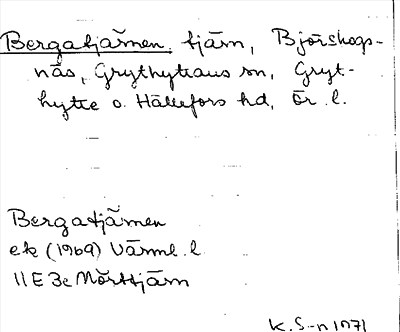 Bergatjärnen, tjärn, Björskogs-
näs, Grythyttans sn, Gryt-
hytte o. Hällefors hd, Ör. l.
Bergatjärnen
ek (1969) Värml. l
11E 3c Mörttjärn
K. S-n 1971